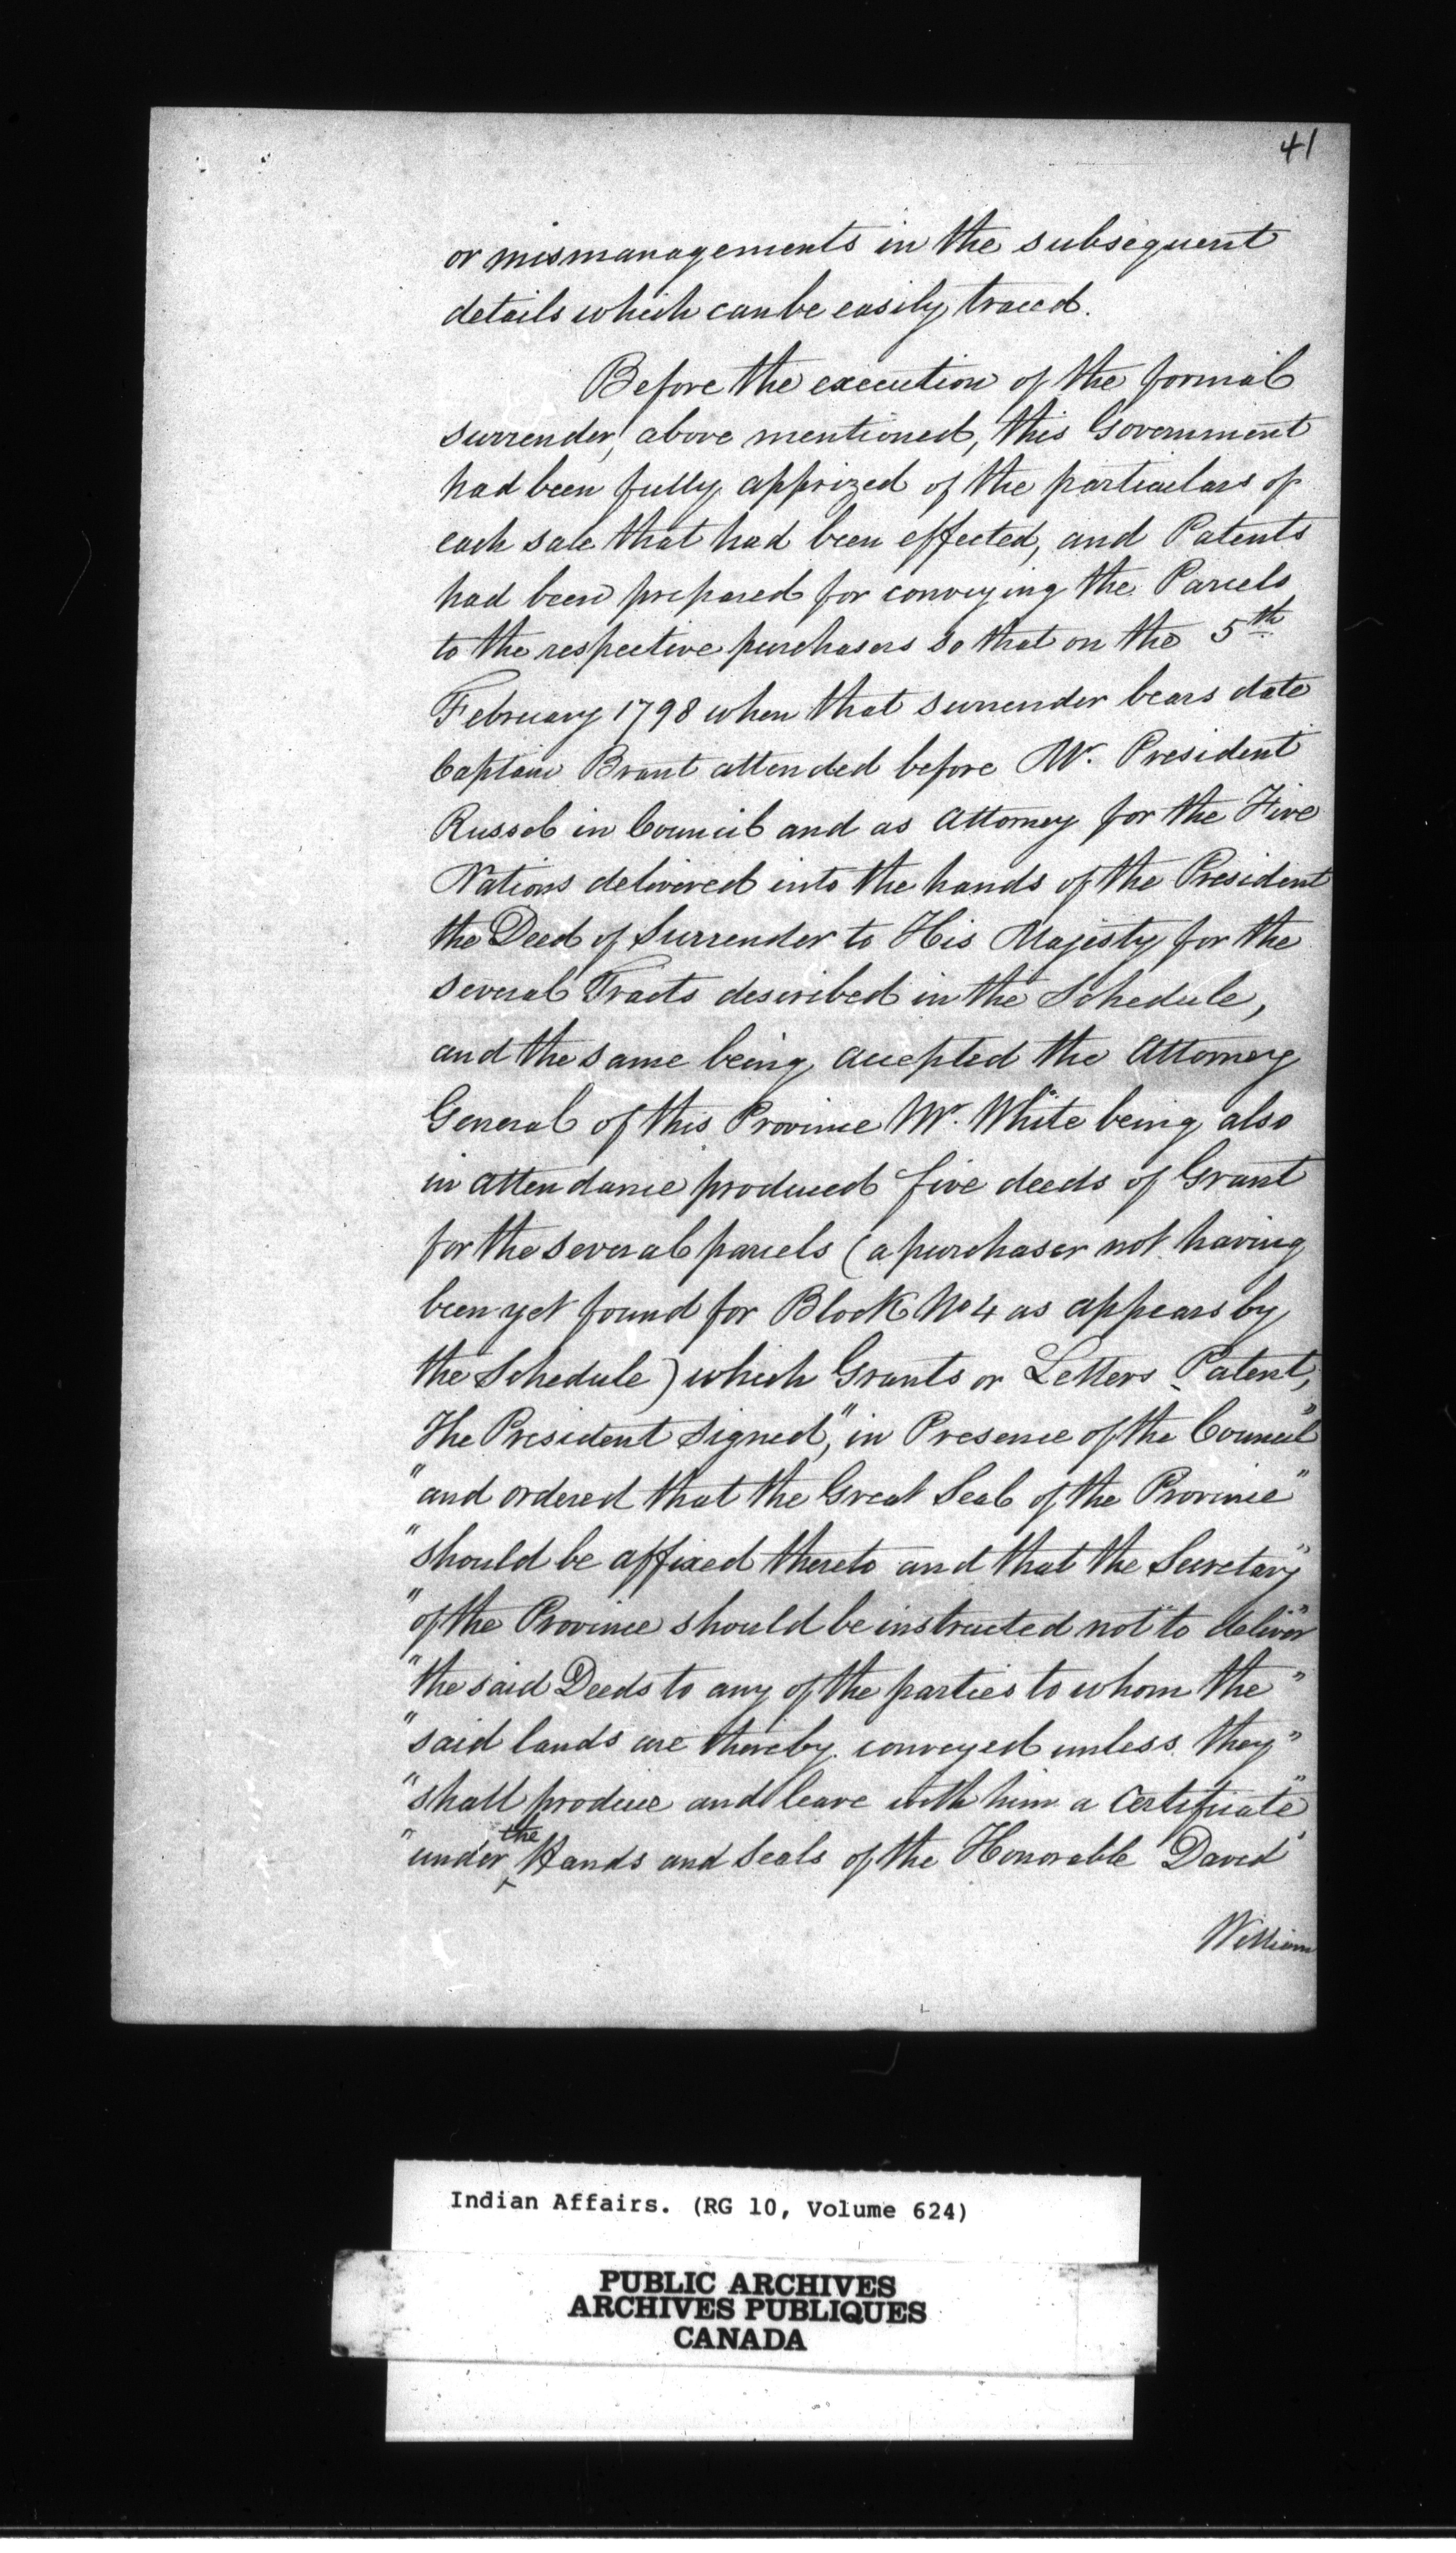 41
or mismanagements in the subsequent
details which can be easily traced.
Before the execution of the formal
surrender, above mentioned, this Government
had been fully apprized of the particulars of
each sale that had been effected, and Patents
had been prepared for conveying the Parcels
to the respective purchasers so that on the 5th
February 1798 when that surrender bears date
Captain Brant attended before Mr. President
Russel in Council and as Attorney for the Five
Nations delivered into the hands of the President
the Deed of Surrender to His Majesty for the
several Tracts described in the Schedule,
and the same being accepted the Attorney
General of this Province Mr. White being also
in attendance produced five deeds of Grant
for the several parcels (a purchaser not having
been yet found for Block No 4 as appears by
the Schedule) which Grants or Letters Patent,
The President signed, "in Presence of the Council"
"and ordered that the Great Seal of the Province"
"should be affixed thereto and that the Secretary"
"of the Province should be instructed not to deliver"
"the said Deeds to any of the parties to whom the"
"said lands are thereby conveyed unless they"
"shall produce and leave with him a Certificate"
"under the Hands and Seals of the Honorable David"
William
Indian Affairs. (RG 10, Volume 624)
PUBLIC ARCHIVES
ARCHIVES PUBLIQUES
CANADA